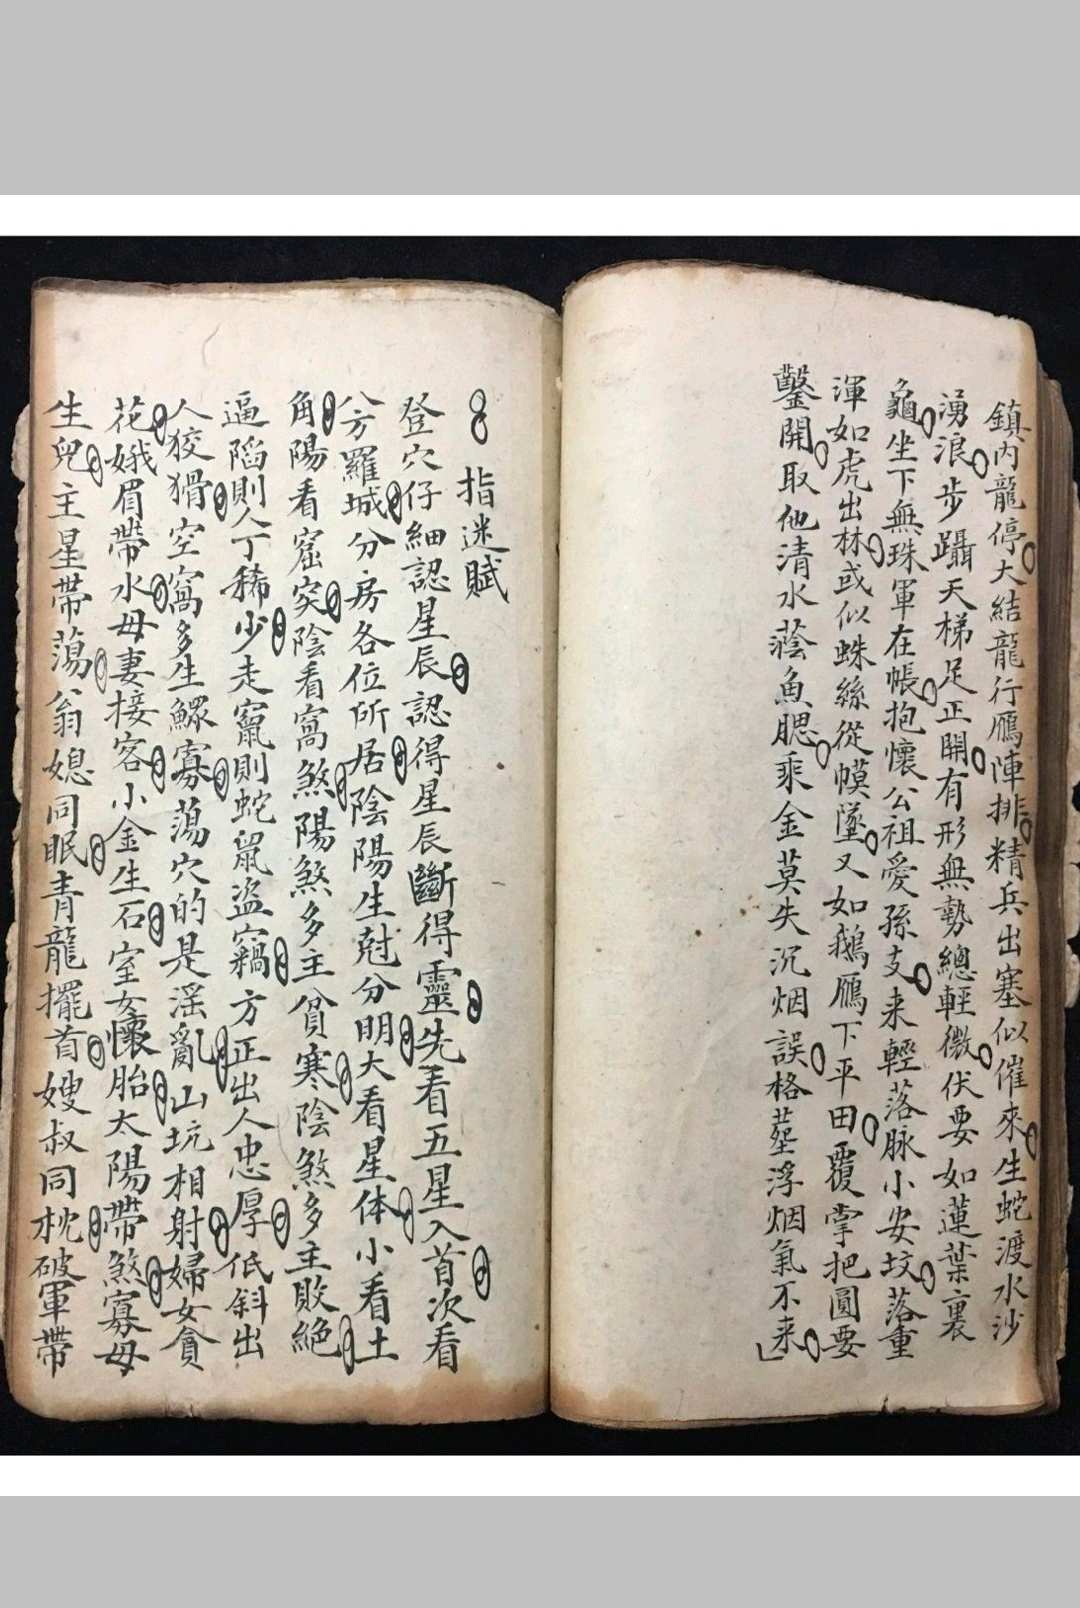 鎮内龍停大結龍行雁陣排精兵出塞似催來生蛇渡水沙
湧浪步躡天梯足正開有形無勢總輕微伏要如蓮葉裏
龜坐下無珠軍在帳抱懷公祖愛孫支来輕落脉小安坟落重
渾如虎出林或似蛛絲從幙墜又如鵝雁下平田覆掌把圓要
鑿開取他清水蔭魚腮乘金莫失沉烟誤格塟浮烟氣不来
指迷賦
登穴仔細認星辰認得星辰斷得靈先看五星入首次看
八方羅城分房各位所居陰陽生尅分明大看星体小看土
角陽看窟突陰看窩煞陽煞多主貧寒陰煞多主敗絕
逼䧟則人丁稀少走竄則蛇鼠盜竊方正出人忠厚低斜出
人狡猾空窩多生鰥寡蕩穴的是淫亂山坑相射婦女貪
花娥眉帶水母妻接客小金生石室女懷胎太陽帶煞寡母
生兒主星帶蕩翁媳同眠青龍擺首嫂叔同枕破軍帶